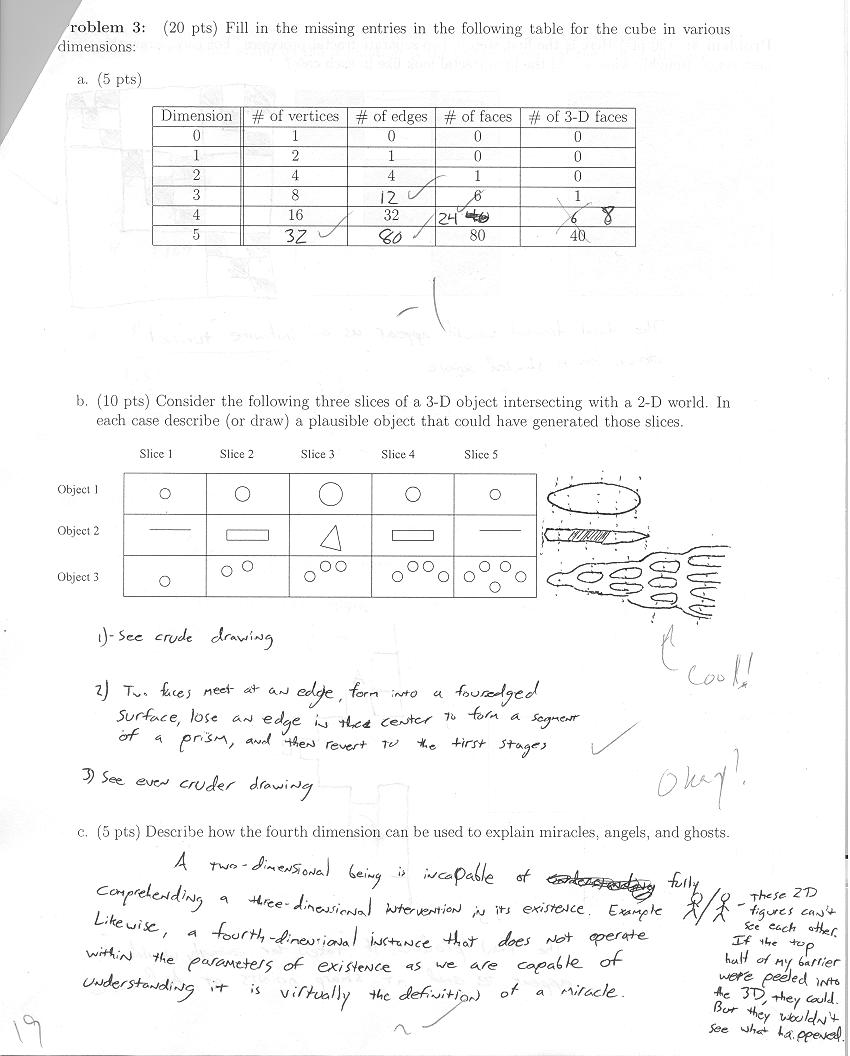 roblem 3: (20 pts) Fill in the missing entries in the following table for the cube in various
dimensions:
a. (5 pts)
Dimension # of vertices # of edges # of faces # of 3-D faces
0 1 0 0 0
1 2 1 0 0
2 4 4 1 0
3 8 12 6 1
4 16 32 24 6 8
5 32 80 80 40
-1
b. (10 pts) Consider the following three slices of a 3-D object intersecting with a 2-D world. In
each case describe (or draw) a plausible object that could have generated those slices.
Slice 1 Slice 2 Slice 3 Slice 4 Slice 5
Object 1
Object 2
Object 3
1)- See crude drawing
Cool!
2) Two faces meet at an edge, form into a fouredged
surface, lose an edge in the center to form a segment
of a prism, and then revert to the first stages
3) See even cruder drawing
Okay!
c. (5 pts) Describe how the fourth dimension can be used to explain miracles, angels, and ghosts.
A two-dimensional being is incapable of fully
comprehending a three-dimensional intervention in its existence. Example
Likewise, a fourth-dimensional instance that does not operate
within the parameters of existence as we are capable of
understanding it is virtually the definition of a miracle.
- These 2D
figures can't
see each other.
If the top
half of my barrier
were peeled into
the 3D, they could.
But they wouldn't
see what happened.
19